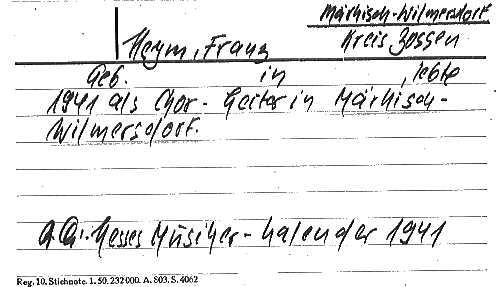 Märkisch-Wilmersdorf
Heym, Franz
Kreis Zossen
Geb. in , lebte
1941 als Chor-Leiter in Märkisch-
Wilmersdorf.
a.a.: Hesses Musiker-Kalender 1941
Reg. 10. Stichnote. 1. 50. 232 000. A. 803. S. 4062